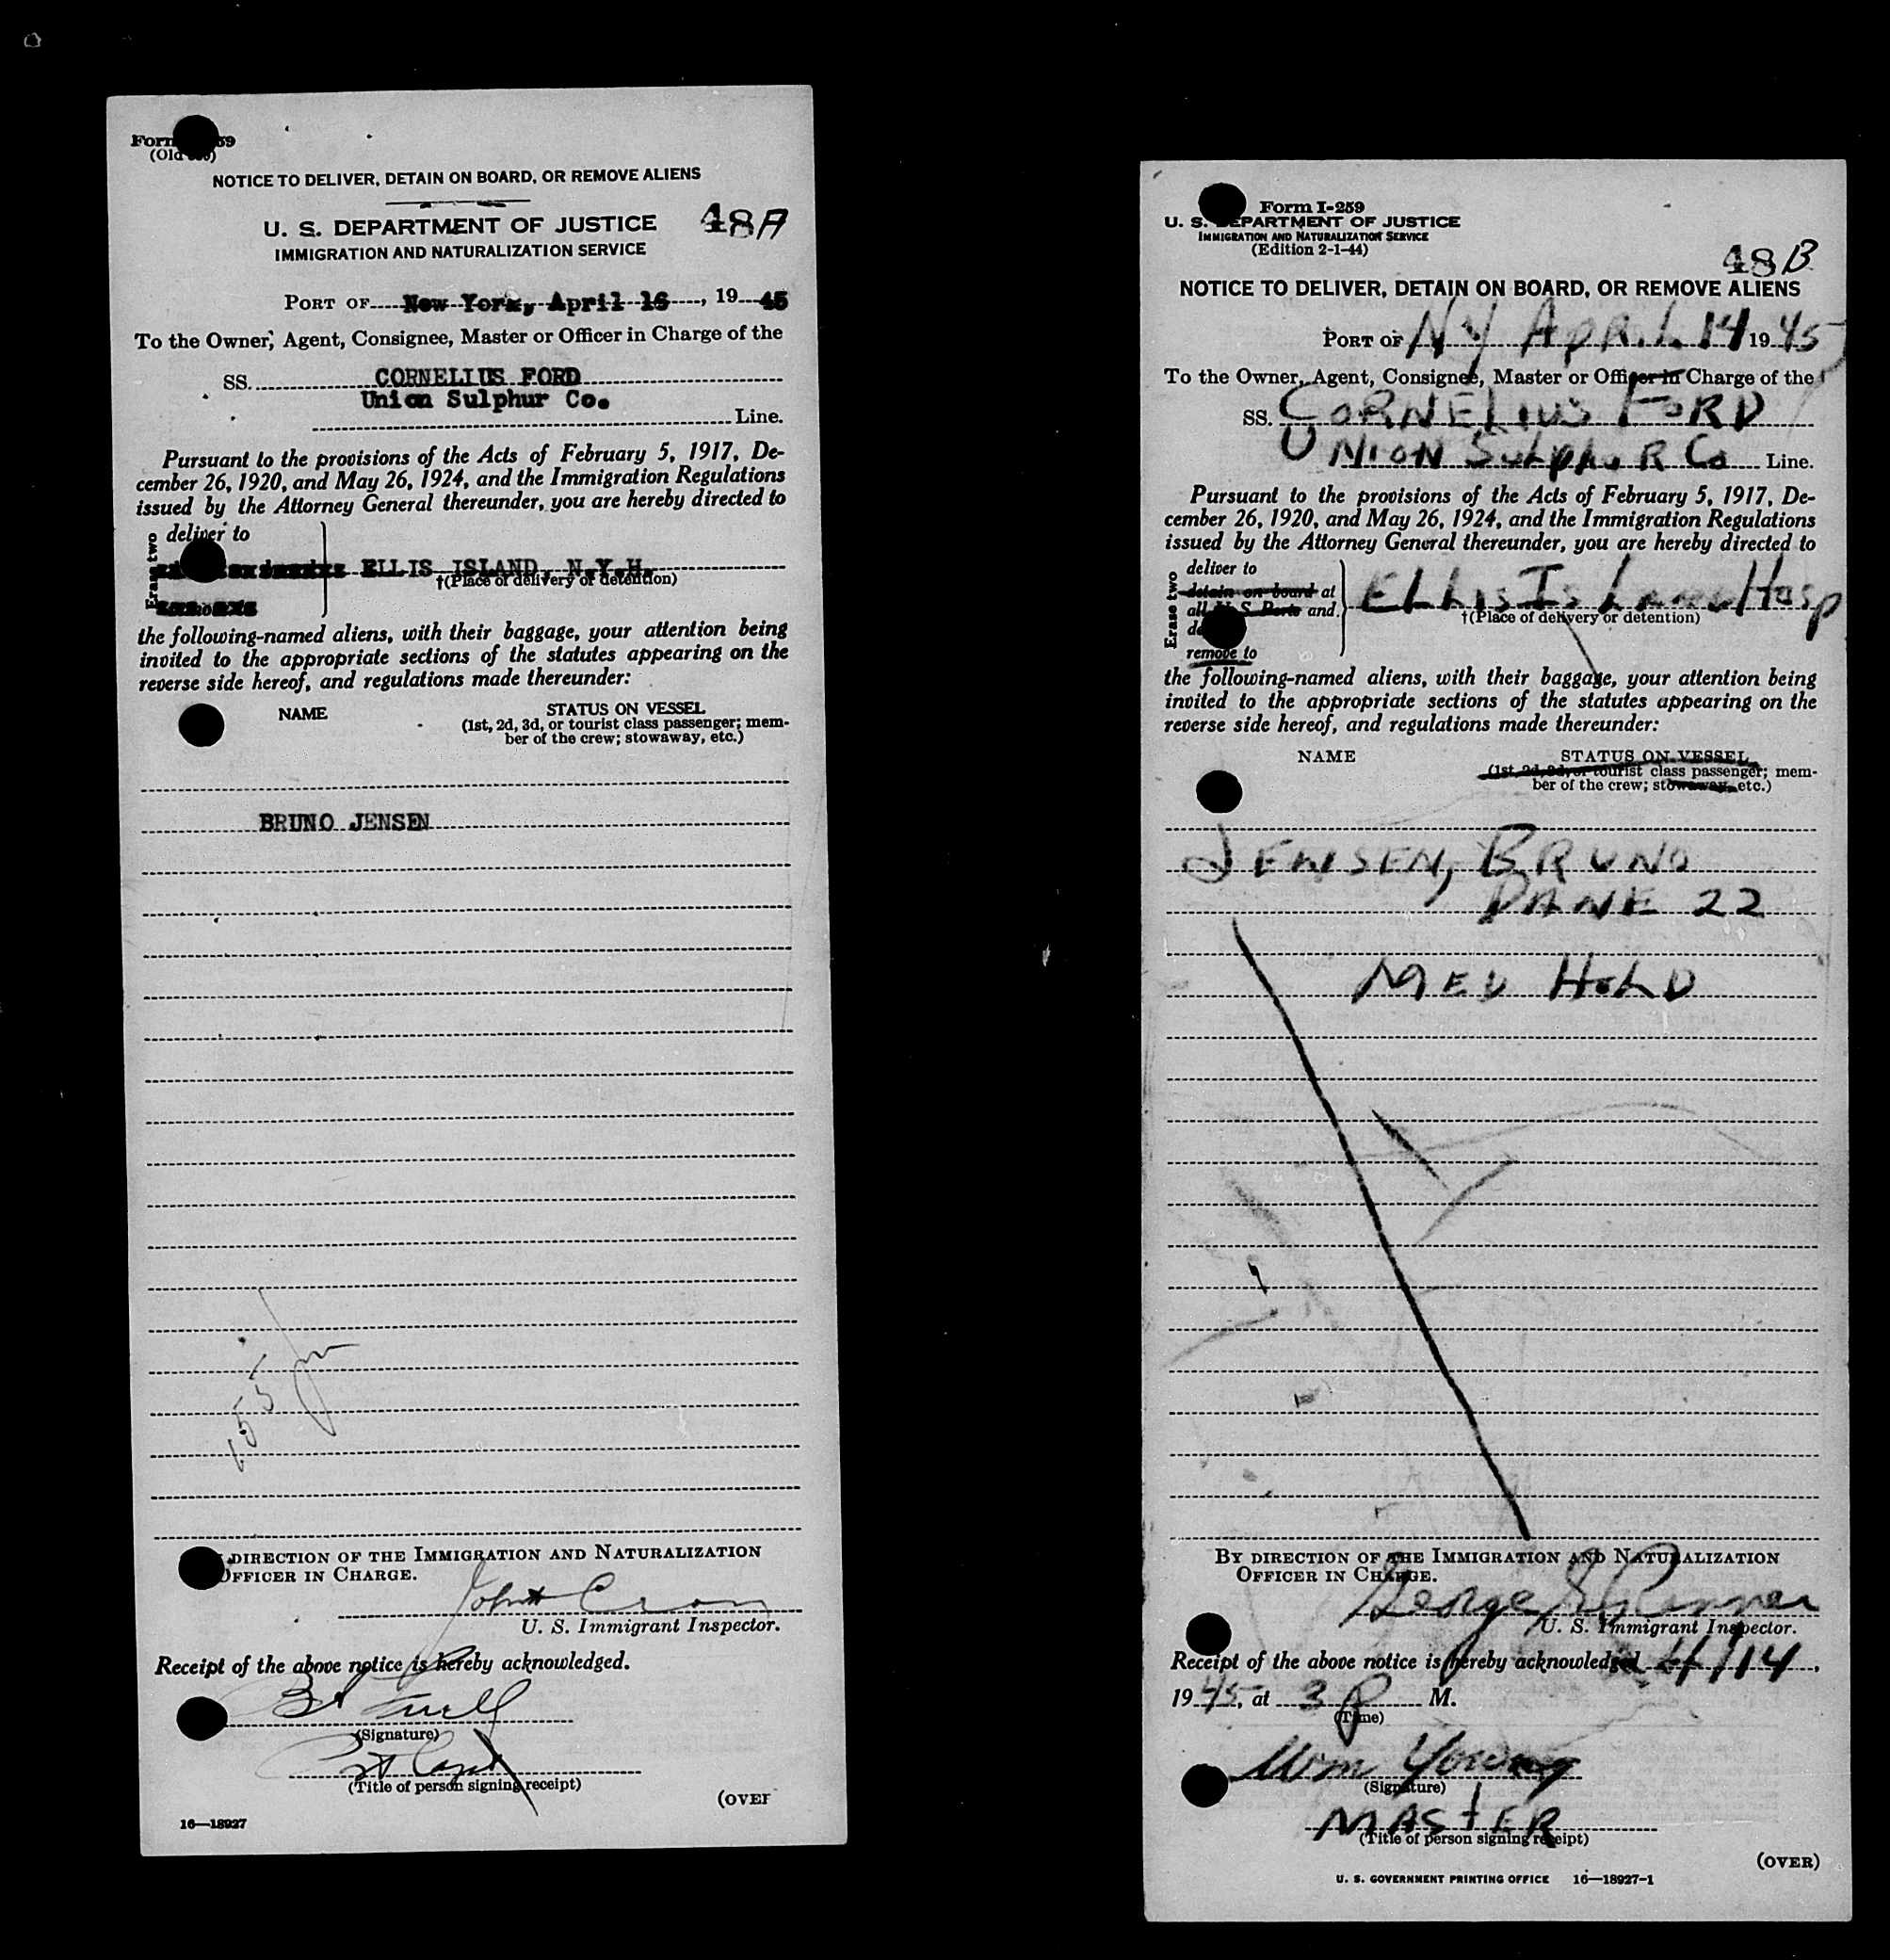 NOTICE TO DELIVER, DETAIN ON BOARD, OR REMOVE ALIENS
U. S. DEPARTMENT OF JUSTICE 48A
IMMIGRATION AND NATURALIZATION SERVICE
PORT OF New York, April 16, 1945
To the Owner, Agent, Consignee, Master or Officer in Charge of the
SS. CORNELIUS FORD
Union Sulphur Co.
Line.
Pursuant to the provisions of the Acts of February 5, 1917, De-
cember 26, 1920, and May 26, 1924, and the Immigration Regulations
issued by the Attorney General thereunder, you are hereby directed to
Erase two
deliver to
ELLIS ISLAND, N.Y.H.
†(Place of delivery or detention)
the following-named aliens, with their baggage, your attention being
invited to the appropriate sections of the statutes appearing on the
reverse side hereof, and regulations made thereunder:
NAME STATUS ON VESSEL
(1st, 2d, 3d, or tourist class passenger; mem-
ber of the crew; stowaway, etc.)
BRUNO JENSEN
DIRECTION OF THE IMMIGRATION AND NATURALIZATION
OFFICER IN CHARGE.
U. S. Immigrant Inspector.
Receipt of the above notice is hereby acknowledged.
(Signature)
(Title of person signing receipt)
(OVER
16—18927
Form I-259
U. S. DEPARTMENT OF JUSTICE
IMMIGRATION AND NATURALIZATION SERVICE
(Edition 2-1-44)
48B
NOTICE TO DELIVER, DETAIN ON BOARD, OR REMOVE ALIENS
PORT OF NY APRIL 14 1945
To the Owner, Agent, Consignee, Master or Officer in Charge of the
SS. CORNELIUS FORD
UNION SULPHUR Co Line.
Pursuant to the provisions of the Acts of February 5, 1917, De-
cember 26, 1920, and May 26, 1924, and the Immigration Regulations
issued by the Attorney General thereunder, you are hereby directed to
Erase two
deliver to
detain on board at
all U. S. Ports and
remove to
ELLIS ISLAND Hosp
†(Place of delivery or detention)
the following-named aliens, with their baggage, your attention being
invited to the appropriate sections of the statutes appearing on the
reverse side hereof, and regulations made thereunder:
NAME STATUS ON VESSEL
(1st, 2d, 3d, or tourist class passenger; mem-
ber of the crew; stowaway, etc.)
JENSEN, BRUNO
DANE 22
MED HOLD
BY DIRECTION OF THE IMMIGRATION AND NATURALIZATION
OFFICER IN CHARGE.
George
U. S. Immigrant Inspector.
Receipt of the above notice is hereby acknowledged 4/14,
1945, at 3 P M.
(Time)
Wm Young
(Signature)
MASTER
(Title of person signing receipt)
(OVER)
U. S. GOVERNMENT PRINTING OFFICE 16—18927-1